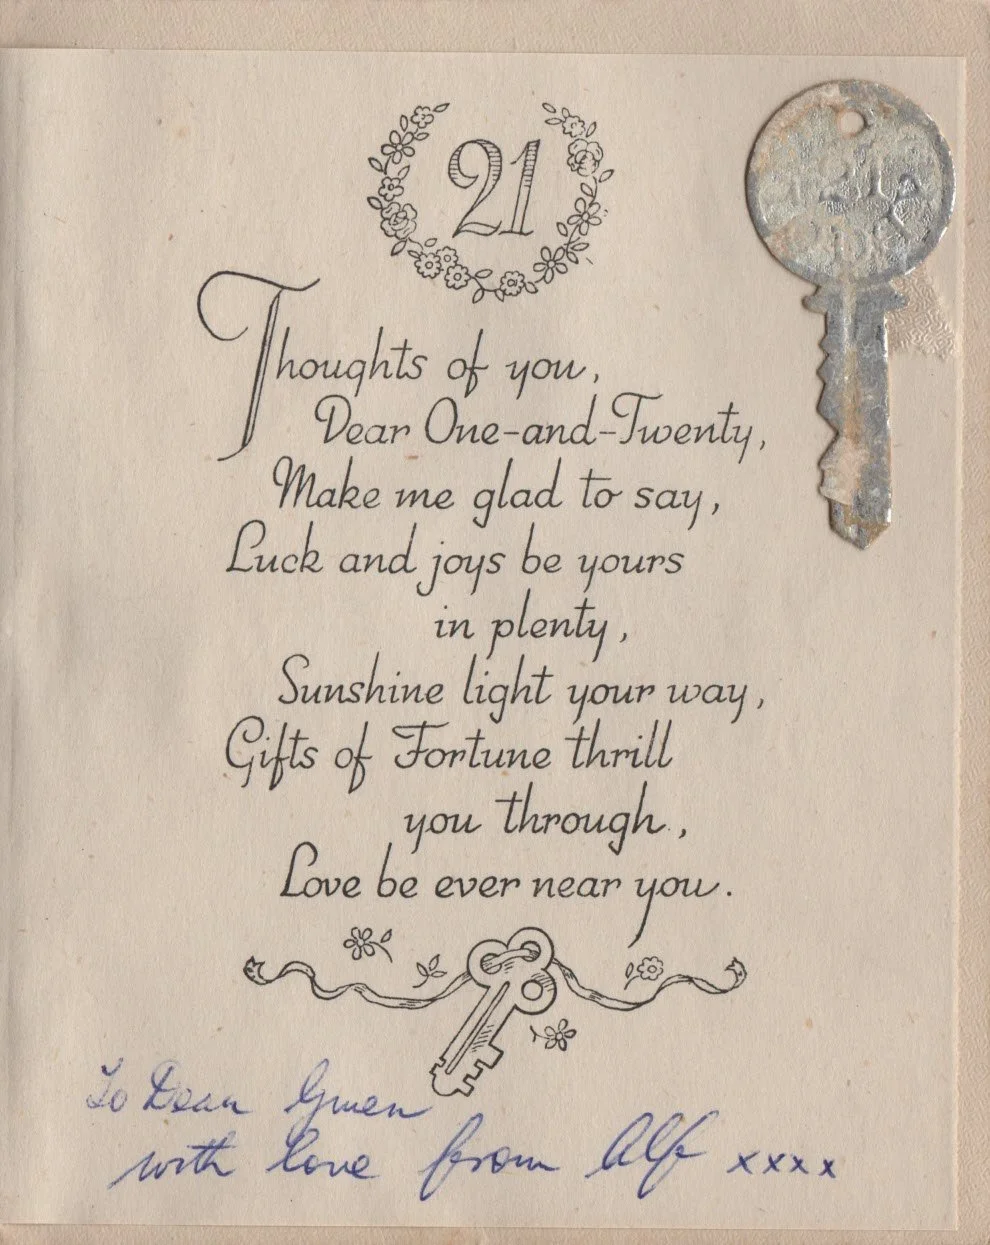 21
Thoughts of you,
Dear One-and-Twenty,
Make me glad to say,
Luck and joys be yours
in plenty,
Sunshine light your way,
Gifts of Fortune thrill
you through,
Love be ever near you.
To Dear Gwen
with love from Alf xxxx